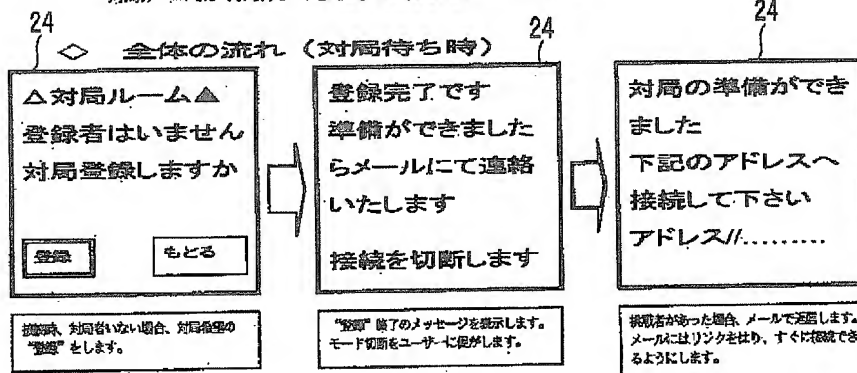 24
24
24
◇ 全体の流れ (対局待ち時)
△対局ルーム▲
登録者はいません
対局登録しますか
登録
もどる
登録完了です
準備ができました
らメールにて連絡
いたします
接続を切断します
対局の準備ができ
ました
下記のアドレスへ
接続して下さい
アドレス//.........
対局者いない場合、対局希望の
"登録"をします。
"登録"終了のメッセージを表示します。
モード切断をユーザーに促がします。
挑戦者があった場合、メールで返信します。
メールにはリンクをはり、すぐに接続でき
るようにします。